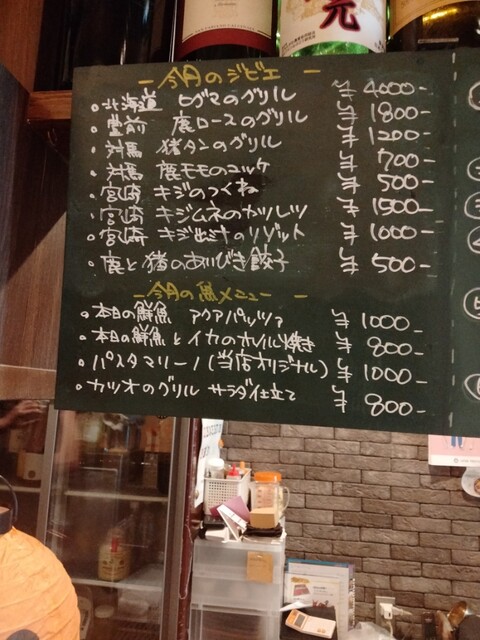 元
－今月のジビエ－
・北海道 ヒグマのグリル ¥4000-
・堂前 鹿ロースのグリル ¥1800-
・対馬 猪タンのグリル ¥1200-
・対馬 鹿モモのユッケ ¥700-
・宮崎 キジのつくね ¥500-
・宮崎 キジムネのカツレツ ¥1500-
・宮崎 キジ出汁のリゾット ¥1000-
・鹿と猪のあいびき餃子 ¥500-
－今月の魚メニュー－
・本日の鮮魚 アクアパッツァ ¥1000-
・本日の鮮魚とイカのホイル焼き ¥800-
・パスタマリーノ(当店オリジナル) ¥1000-
・カツオのグリル サラダ仕立て ¥800-